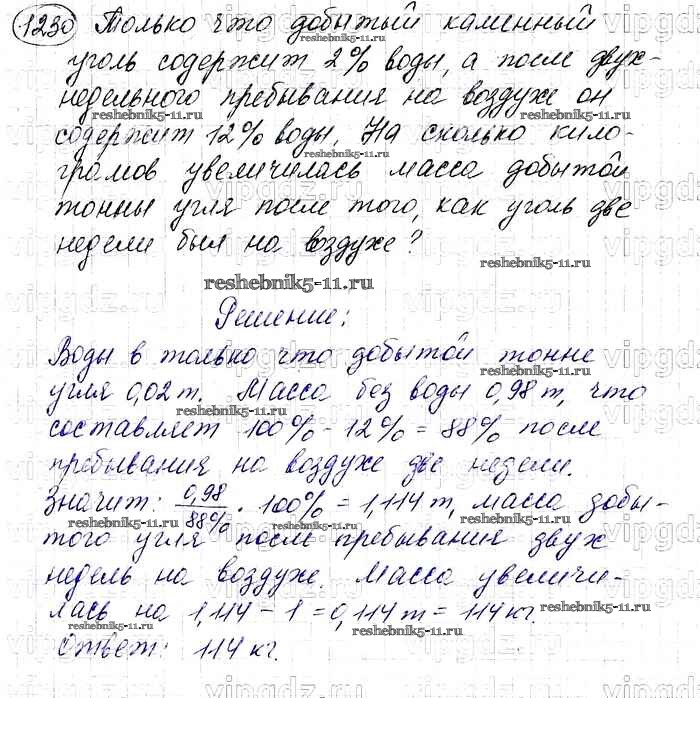 1230 Только что добытый каменный
уголь содержит 2% воды, а после двух-
недельного пребывания на воздухе он
содержит 12% воды. На сколько кило-
грамов увеличилась масса добытой
тонны угля после того, как уголь две
недели был на воздухе?
reshebnik5-11.ru
Решение:
Воды в только что добытой тонне
угля 0,02 т. Масса без воды 0,98 т, что
составляет 100% - 12% = 88% после
пребывания на воздухе две недели.
Значит: 0,98/88% · 100% = 1,114 т, масса добы-
того угля после пребывания двух
недель на воздухе. Масса увеличи-
лась на 1,114 - 1 = 0,114 т = 114 кг.
Ответ: 114 кг.
vipgdz.ru